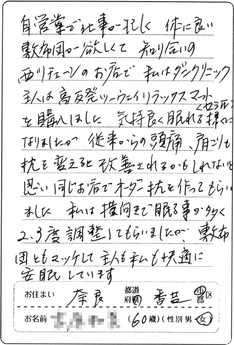 自営業で仕事が忙しく 体に良い
敷布団が欲しくて 知り合いの
西川チェーンのお店で 私はダンクリニック
主人は高反発ツーウェイリラックスマット
を購入しました 気持良く眠れる様に
なりましたが 従来からの頭痛、肩こりも
枕を変えると改善されるかもしれないと
思い同じお店でオーダー枕を作ってもらい
ました 私は横向きで眠る事が多く
2、3度調整してもらいましたが、敷布
団ともマッチして主人も私も快適に
安眠しています
お住まい 奈良 都道府県 香芝 市
お名前 (60歳)(性別 男・女)